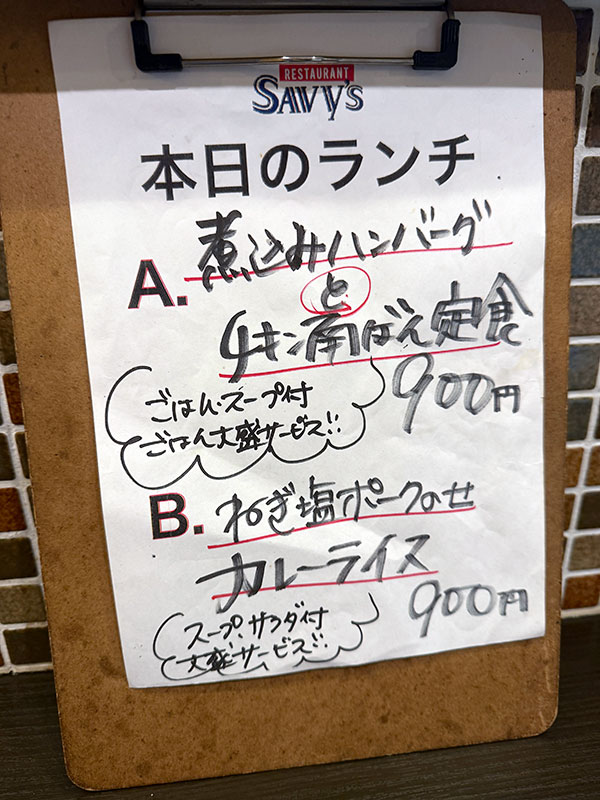 RESTAURANT
SAVVY'S
本日のランチ
A. 煮込みハンバーグ
と
チキン南ばん定食
900円
ごはん・スープ付
ごはん大盛サービス!!
B. ねぎ塩ポークのせ
カレーライス
900円
スープ・サラダ付
大盛サービス!!